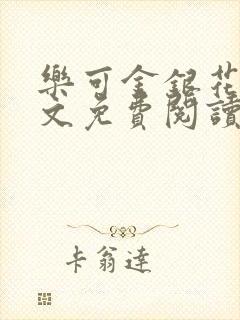 樂可金銀花
文免費閱讀
卡翁達